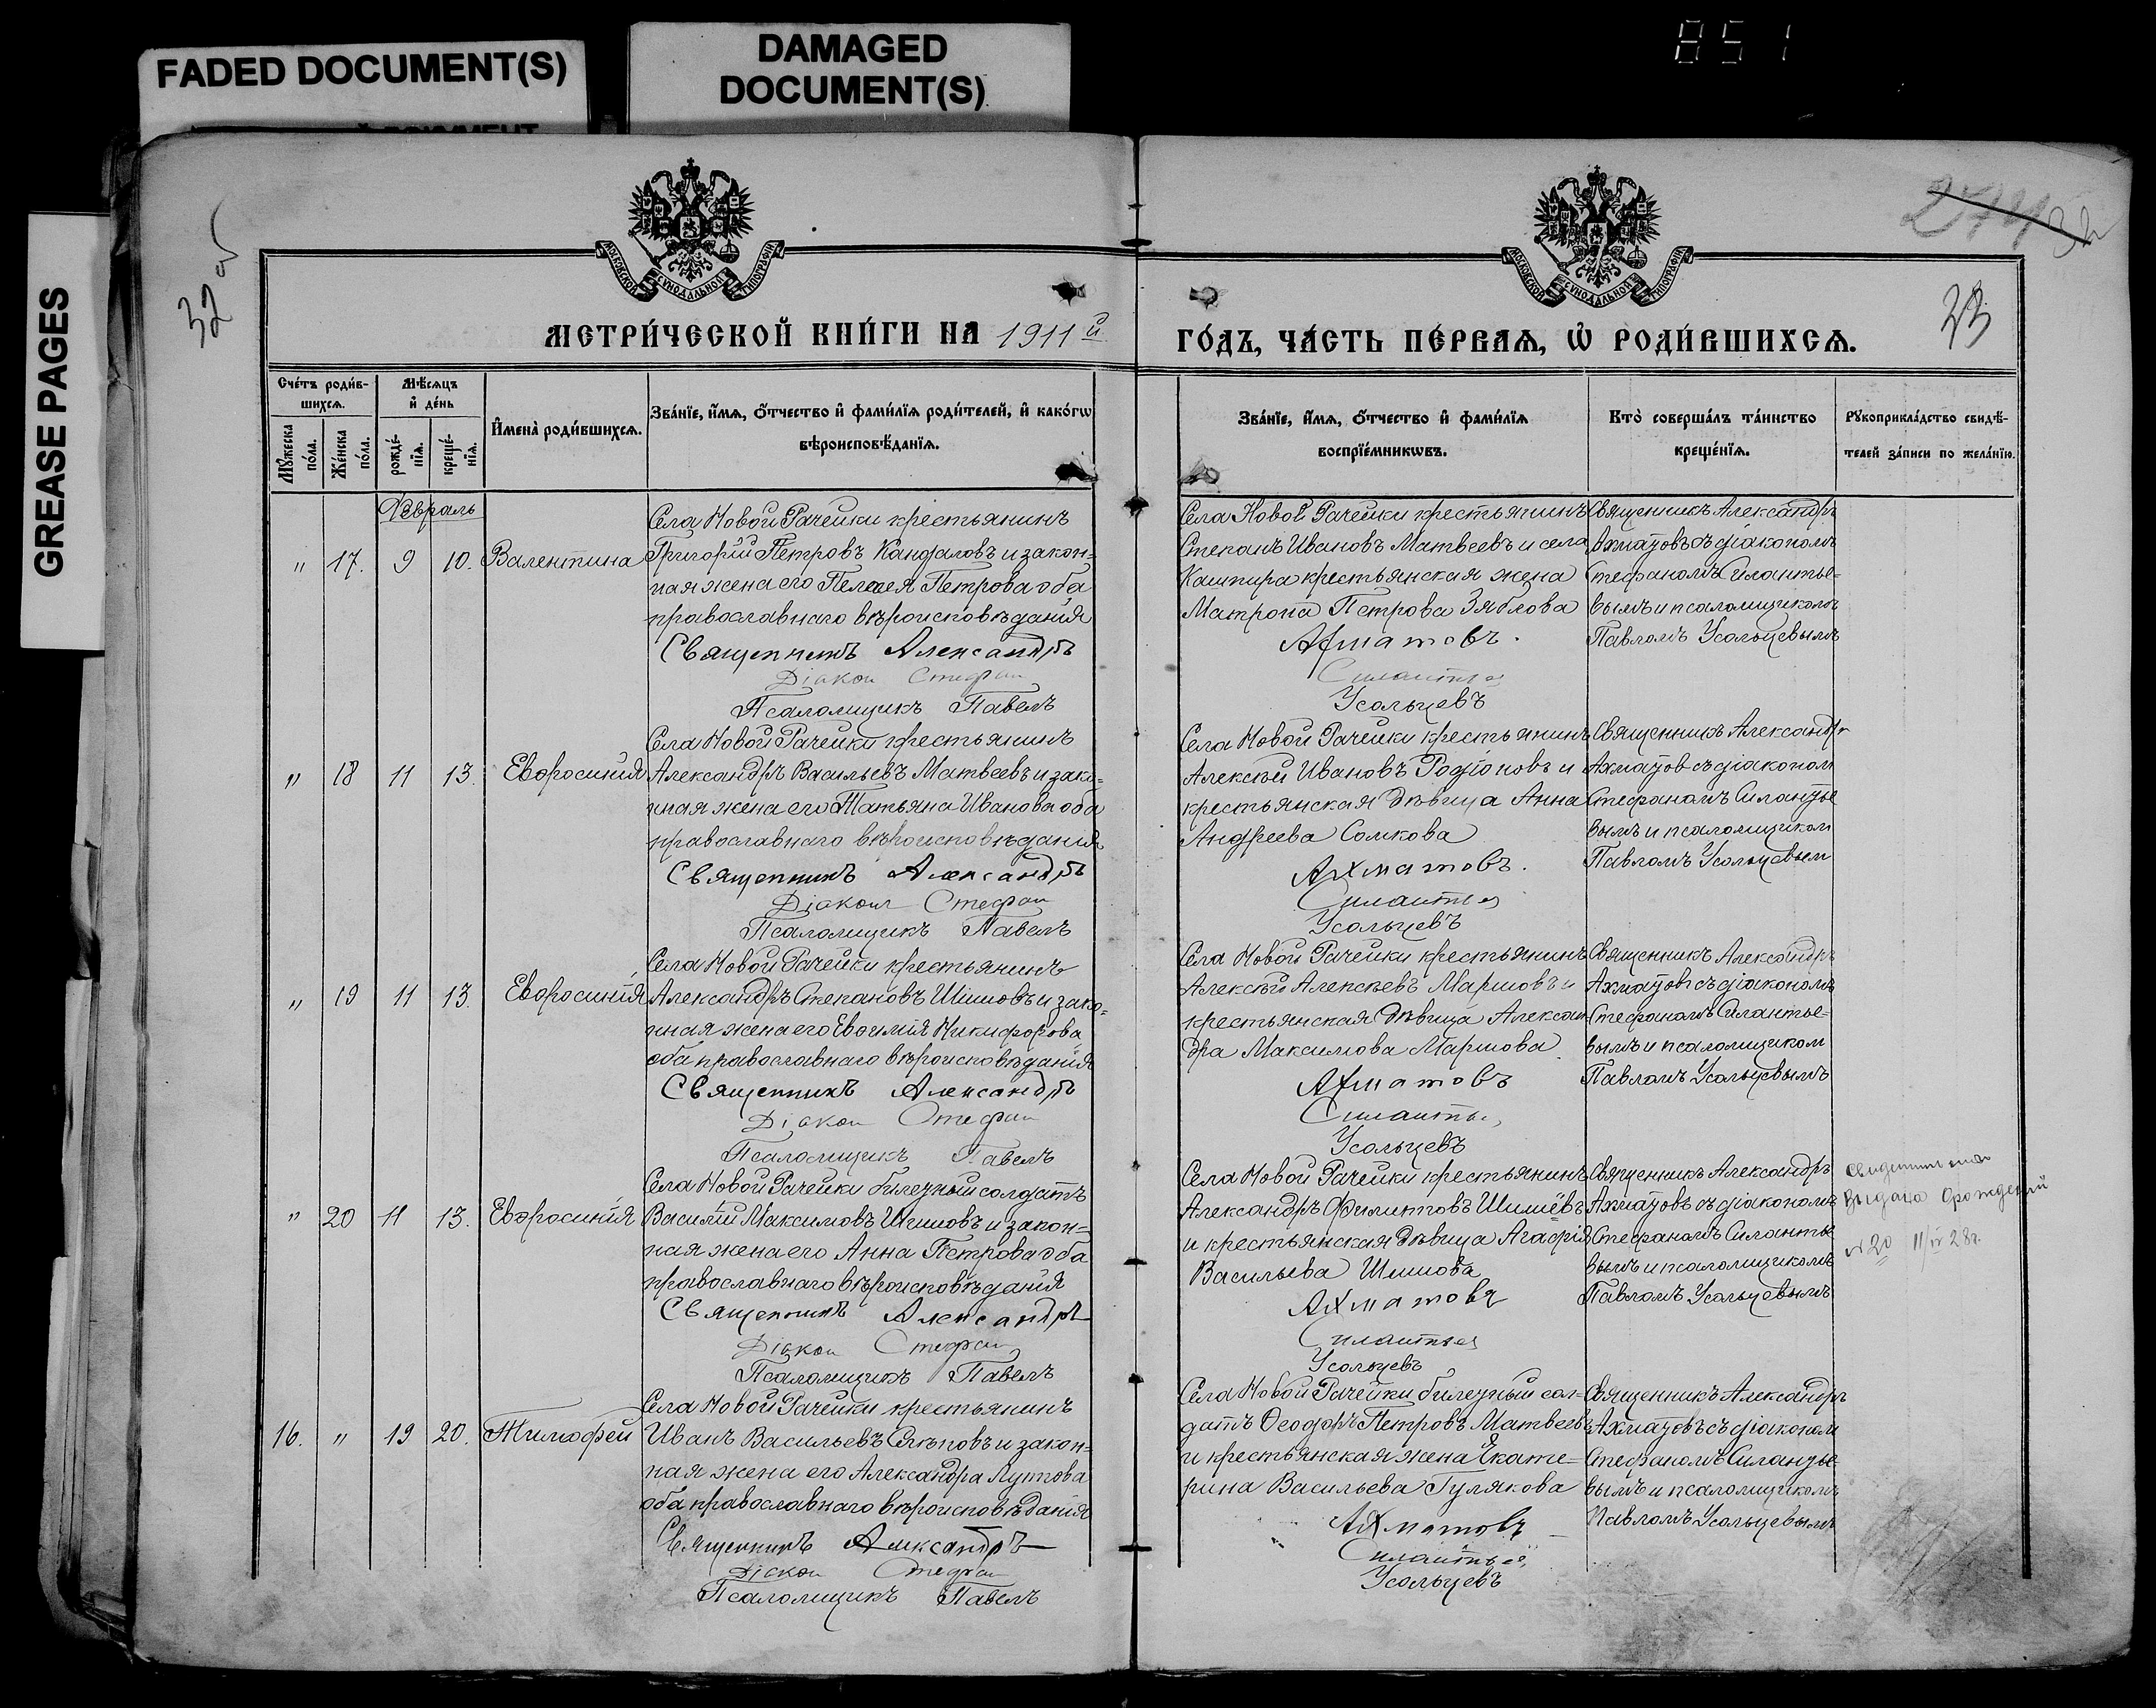 851
FADED DOCUMENT(S)
DAMAGED
DOCUMENT(S)
GREASE PAGES
32 об
274 32
23
МОСКОВСКОЙ СѴНОДАЛЬНОЙ ТИПОГРАФІИ
МОСКОВСКОЙ СѴНОДАЛЬНОЙ ТИПОГРАФІИ
МЕТРИ́ЧЕСКОЙ КНИ́ГИ НА 1911й
ГО́ДЪ, ЧА́СТЬ ПЕ́РВАѦ, Ѡ҆ РОДИ́ВШИХСѦ.
Сче́тъ роди́в-
шихсѧ.
Мѣ́сѧцъ
и҆ де́нь
Мꙋ́жеска
по́ла.
Же́нска
по́ла.
рожде́-
нїѧ.
креще́-
нїѧ.
И҆мена̀ роди́вшихсѧ.
Зва́нїе, и҆́мѧ, ѻ҆́тчество и҆ фами́лїѧ роди́телей, и҆ како́гѡ
вѣроисповѣ́данїѧ.
Зва́нїе, и҆́мѧ, ѻ҆́тчество и҆ фами́лїѧ
воспрїе́мникѡвъ.
Кто̀ соверша́лъ та́инство
креще́нїѧ.
Рꙋкоприкла́дство свидѣ́-
телей за́писи по жела́нїю.
Февраль
" 17. 9 10. Валентина
Села Новой Рачейки крестьянинъ
Григорій Петровъ Кандаловъ и закон-
ная жена его Пелагея Петрова оба
православнаго вѣроисповѣданія
Священникъ Александръ
Діакон Стефан
Псаломщикъ Павелъ
Села Новой Рачейки крестьянинъ
Степанъ Ивановъ Матвеевъ и села
Кашпира крестьянская жена
Матрона Петрова Зяблова
Ахматовъ.
Силантьев
Усольцевъ
Священникъ Александръ
Ахматовъ съ діакономъ
Стефаномъ Силантье-
вымъ и псаломщикомъ
Павломъ Усольцевымъ
" 18 11 13. Евфросинія
Села Новой Рачейки крестьянинъ
Александръ Васильевъ Матвеевъ и зако-
нная жена его Татьяна Иванова оба
православнаго вѣроисповѣданія
Священникъ Александръ
Діакон Стефан
Псаломщикъ Павелъ
Села Новой Рачейки крестьянинъ
Алексѣй Ивановъ Родіоновъ и
крестьянская дѣвица Анна
Андреева Сомкова
Ахматовъ.
Силантьев
Усольцевъ
Священникъ Александръ
Ахматов съ діакономъ
Стефаномъ Силантье
вымъ и псаломщиком
Павломъ Усольцевым
" 19 11 13. Евфросинія
Села Новой Рачейки крестьянинъ
Александръ Степановъ Шишовъ и зако-
нная жена его Евфимія Никифорова
оба православнаго вѣроисповѣданія
Священникъ Александръ
Діакон Стефан
Псаломщикъ Павелъ
Села Новой Рачейки крестьянинъ
Алексѣй Алексѣевъ Маршовъ и
крестьянская дѣвица Алексан-
дра Максимова Маршова
Ахматовъ
Силантьев
Усольцевъ
Священникъ Александръ
Ахматовъ съ діакономъ
Стефаномъ Силантье-
вымъ и псаломщиком
Павломъ Усольцевымъ
" 20 11 13. Евфросинія
Села Новой Рачейки билетный солдатъ
Василій Максимовъ Шишовъ и закон-
ная жена его Анна Петрова оба
православнаго вѣроисповѣданія
Священникъ Александръ
Діакон Стефан
Псаломщикъ Павелъ
Села Новой Рачейки крестьянинъ
Александръ Шишовъ
и крестьянская дѣвица Агафія
Васильева Шишова
Ахматовъ
Силантьев
Усольцевъ
Священникъ Александръ
Ахматовъ съ діакономъ
Стефаномъ Силантье
вымъ и псаломщикомъ
Павломъ Усольцевымъ
выдано о рождении
№20 11/IV 28г.
16. " 19 20. Тимофей
Села Новой Рачейки крестьянинъ
Иванъ Васильевъ Слѣповъ и закон-
ная жена его Александра
оба православнаго вѣроисповѣданія
Священникъ Александръ
Діакон Стефан
Псаломщикъ Павелъ
Села Новой Рачейки билетный сол-
датъ Ѳеодоръ Петровъ Матвеевъ
и крестьянская жена Екате-
рина Васильева Гулякова
Ахматовъ
Силантьев
Усольцевъ
Священникъ Александръ
Ахматовъ съ діакономъ
Стефаномъ Силантье
вымъ и псаломщикомъ
Павломъ Усольцевымъ